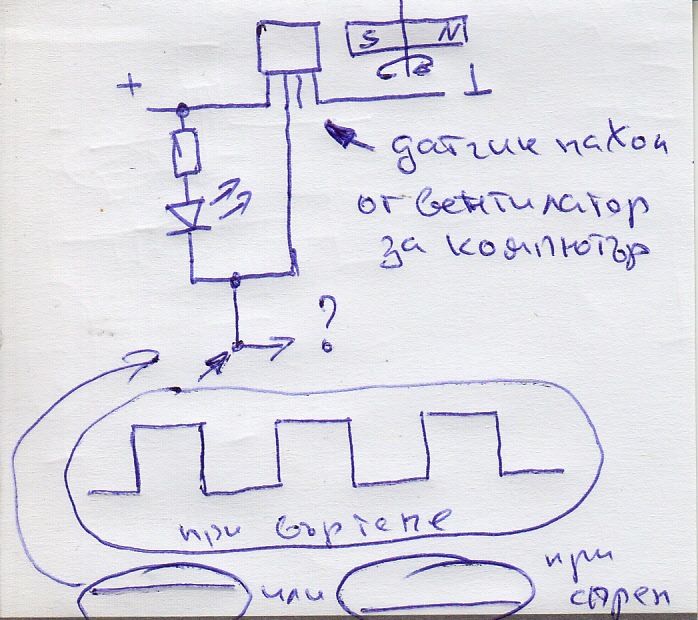 S N
+
⊥
датчик на Хол
от вентилатор
за компютър
?
при въртене
или
при
спрян